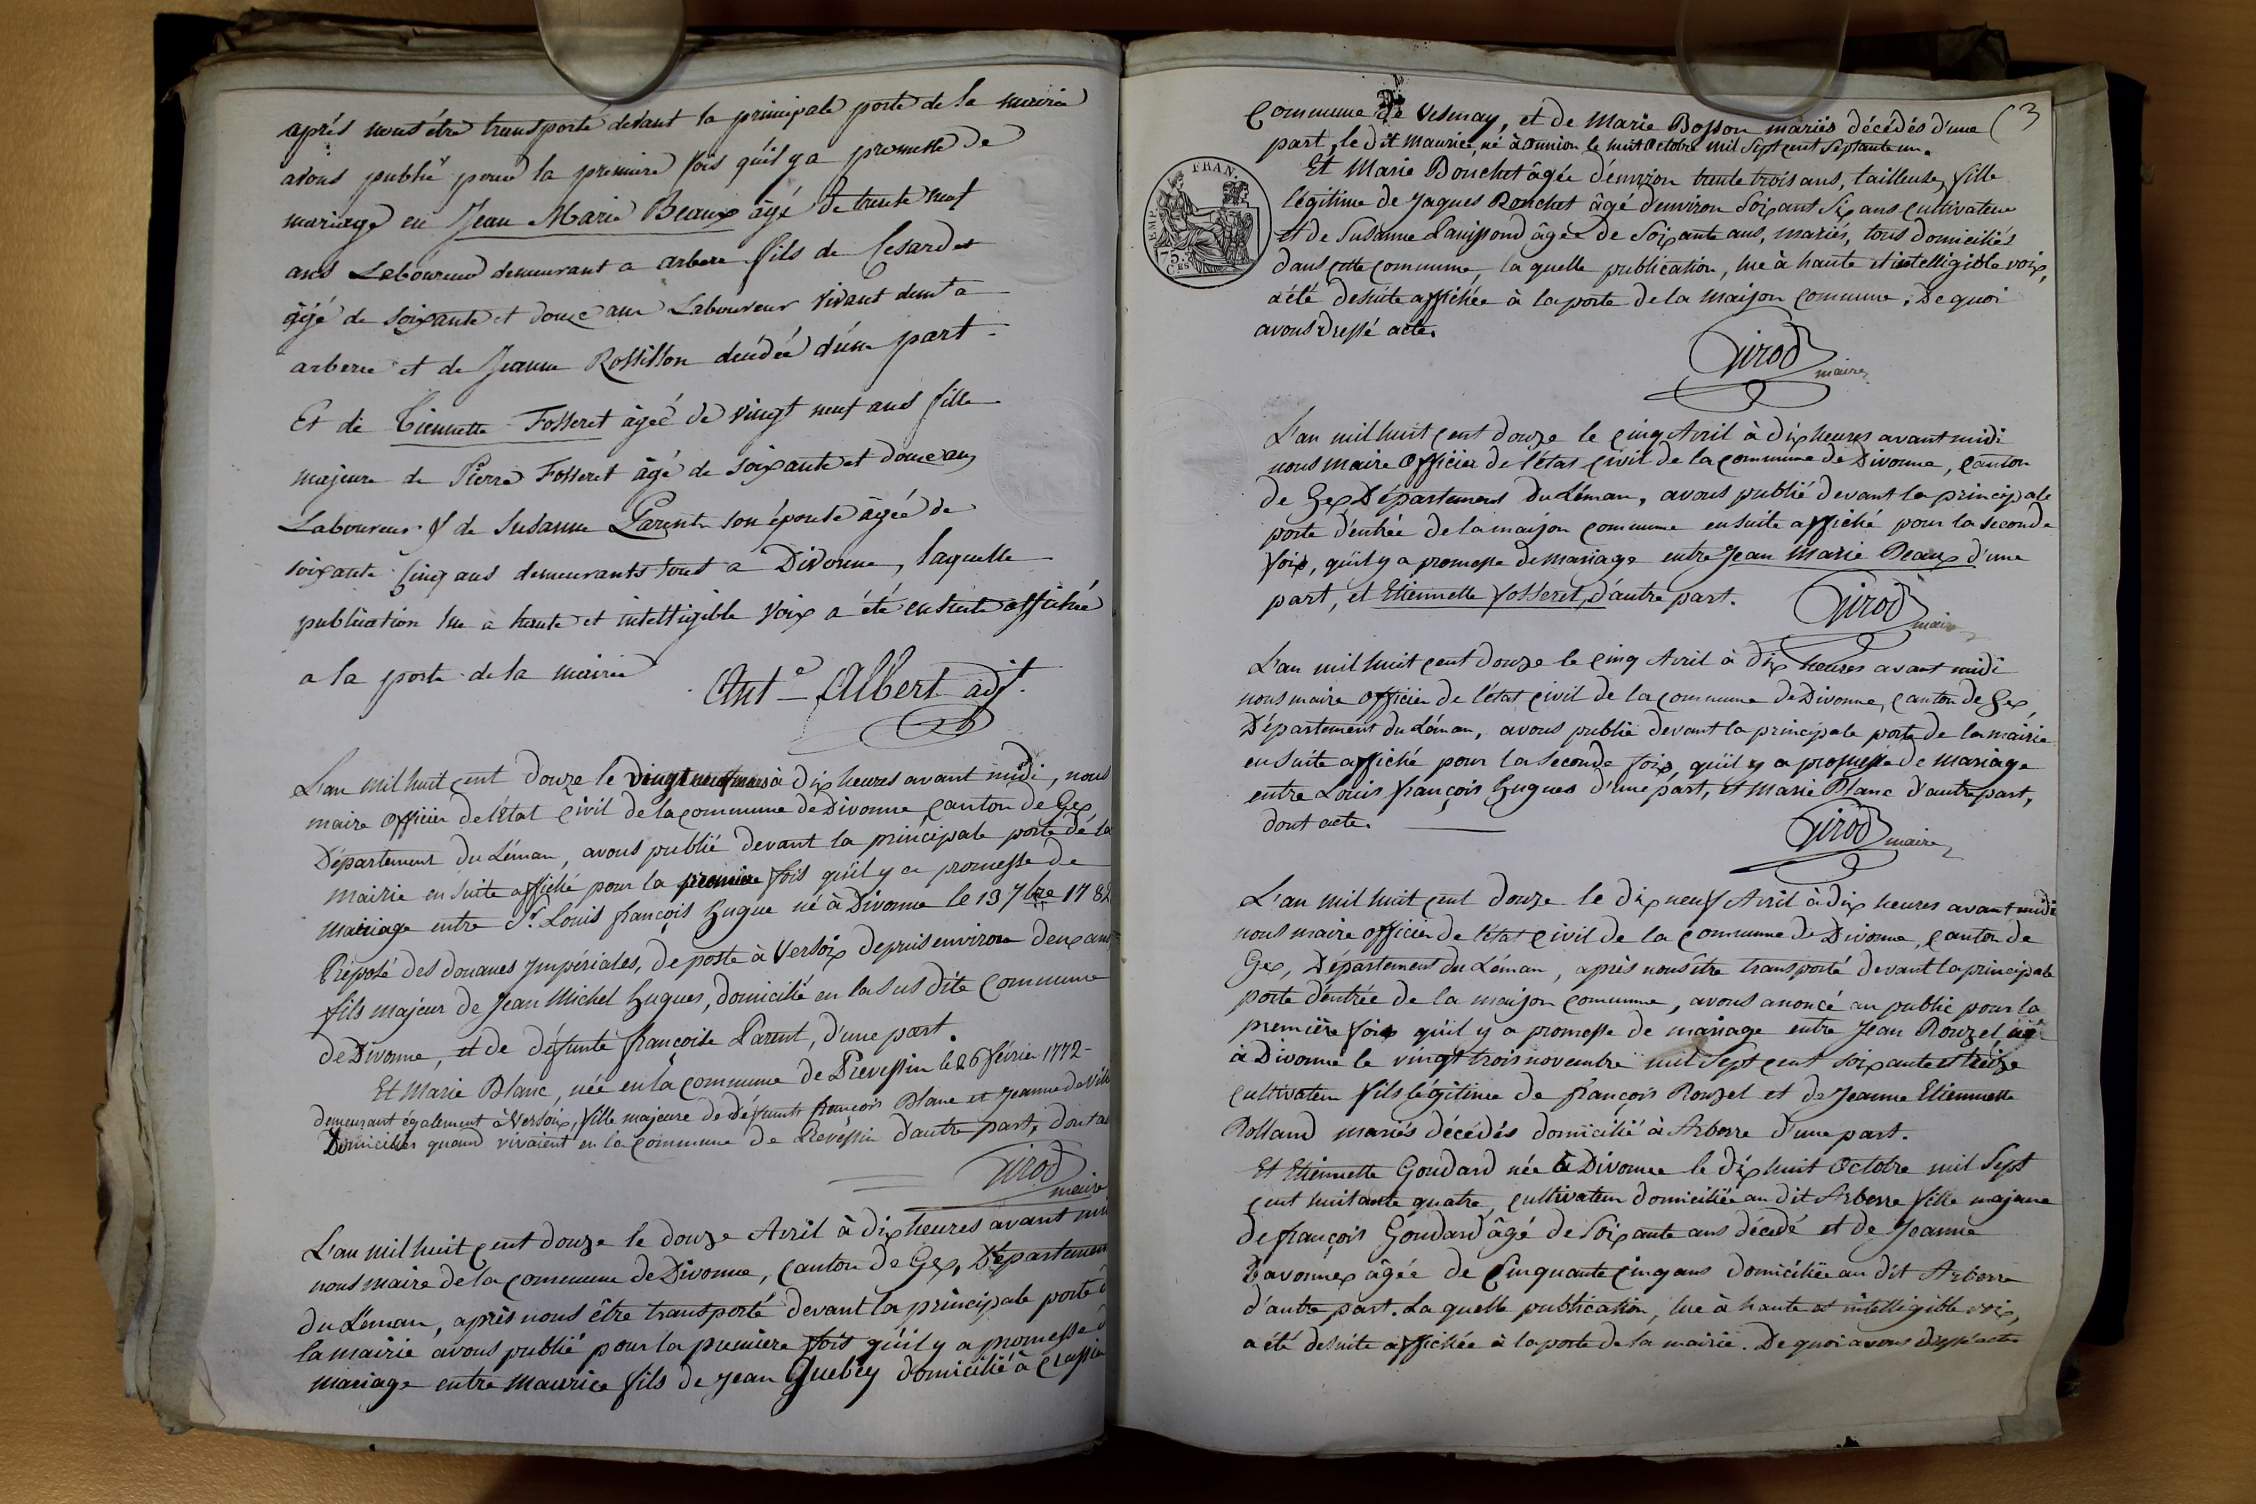 après nous être transporté devant la principale porte de la mairie
avons publié pour la premiere fois qu'il y a promesse de
mariage en Jean Marie Beaux âgé de trente neuf
ans Laboureur demeurant a arbere fils de Cesard et
âgé de soixante et douze ans Laboureur vivant demt a
arbere et de Jeanne Rossillon décédée d'une part
Et de Tiennette Fosseret âgée de vingt neuf ans fille
majeure de Pierre Fosseret âgé de soixante et douze ans
Laboureur & de Susanne Parent son épouse âgée de
soixante cinq ans demeurants tous a Divonne, laquelle
publication lue à haute et intelligible voix a été ensuite affichée
a la porte de la mairie
Ant.e Albert adjt.
L'an mil huit cent douze le vingt neuf mars à dix heures avant midi, nous
maire officier de l'état civil de la commune de Divonne canton de Gex
Département du Léman, avons publié devant la principale porte de la
mairie ensuite affiché pour la premiere fois qu'il y a promesse de
mariage entre Sr. Louis françois hugue né à Divonne le 13 7bre 1782
Préposé des douanes Impériales, de poste à Versoix depuis environ deux ans
fils majeur de Jean Michel hugues, domicilié en la susdite commune
de Divonne, et de défunte françoise Parent, d'une part.
Et Marie Blanc, née en la commune de Prevessin le 26 février 1772
demeurant également à Versoix, fille majeure de défunts françois Blanc et Jeanne de
Domiciliés quand vivaient en la commune de Prevéssin d'autre part, dont
Girod
maire
L'an mil huit cent douze le douze Avril à dix heures avant
nous maire de la commune de Divonne, canton de Gex, Département
du Léman, après nous être transporté devant la principale porte
la mairie avons publié pour la premiere fois qu'il y a promesse
mariage entre Maurice fils de Jean Quebey domicilié à
3
Commune de Vesenay, et de Marie Bosson mariés décédés d'une
part, le dit maurice, né à onnion le huit octobre mil sept cent septante un.
EMP. FRAN.
75 Ces
Et Marie Bouchet âgée d'environ trente trois ans, tailleuse, fille
légitime de Jaques Bouchet âgé d'environ soixante six ans cultivateur
et de Susanne Panissod âgée de soixante ans, mariés, tous domiciliés
dans cette commune, la quelle publication, lue à haute et intelligible voix,
a été desuite affichée à la porte de la maison commune. De quoi
avons dressé acte.
Girod
maire
L'an mil huit cent douze le cinq Avril à dix heures avant midi
nous maire officier de l'état civil de la commune de Divonne, canton
de Gex Département du Léman, avons publié devant la principale
porte d'entrée de la maison commune ensuite affiché pour la seconde
fois, qu'il y a promesse de mariage entre Jean Marie Beaux d'une
part, et Etiennette fosseret, d'autre part.
Girod
maire
L'an mil huit cent douze le cinq Avril à dix heures avant midi
nous maire officier de l'état civil de la commune de Divonne, canton de Gex,
Département du Léman, avons publié devant la principale porte de la mairie
ensuite affiché pour la seconde fois, qu'il y a promesse de mariage
entre Louis françois hugues d'une part, et Marie Blanc d'autre part,
dont acte.
Girod
maire
L'an mil huit cent douze le dix neuf Avril à dix heures avant midi
nous maire officier de l'état civil de la commune de Divonne, canton de
Gex, Département du Léman, après nous être transporté devant la principale
porte d'entrée de la maison commune, avons anoncé au public pour la
première fois qu'il y a promesse de mariage entre Jean Rouzel né
à Divonne le vingt trois novembre mil sept cent soixante et treize
cultivateur fils légitime de françois Rouzel et de Jeanne Etiennette
Rolland mariés décédés domicilié à Arberre d'une part.
Et Etiennette Goudard née à Divonne le dix huit Octobre mil sept
cent huitante quatre, cultivateur domiciliée au dit Arberre fille majeure
de françois Goudard âgé de soixante ans décedé et de Jeanne
Davonnex âgée de Cinquante cinq ans domiciliée au dit Arberre
d'autre part. La quelle publication, lue à haute et intelligible voix,
a été desuite affichée à la porte de la mairie. De quoi avons dressé acte